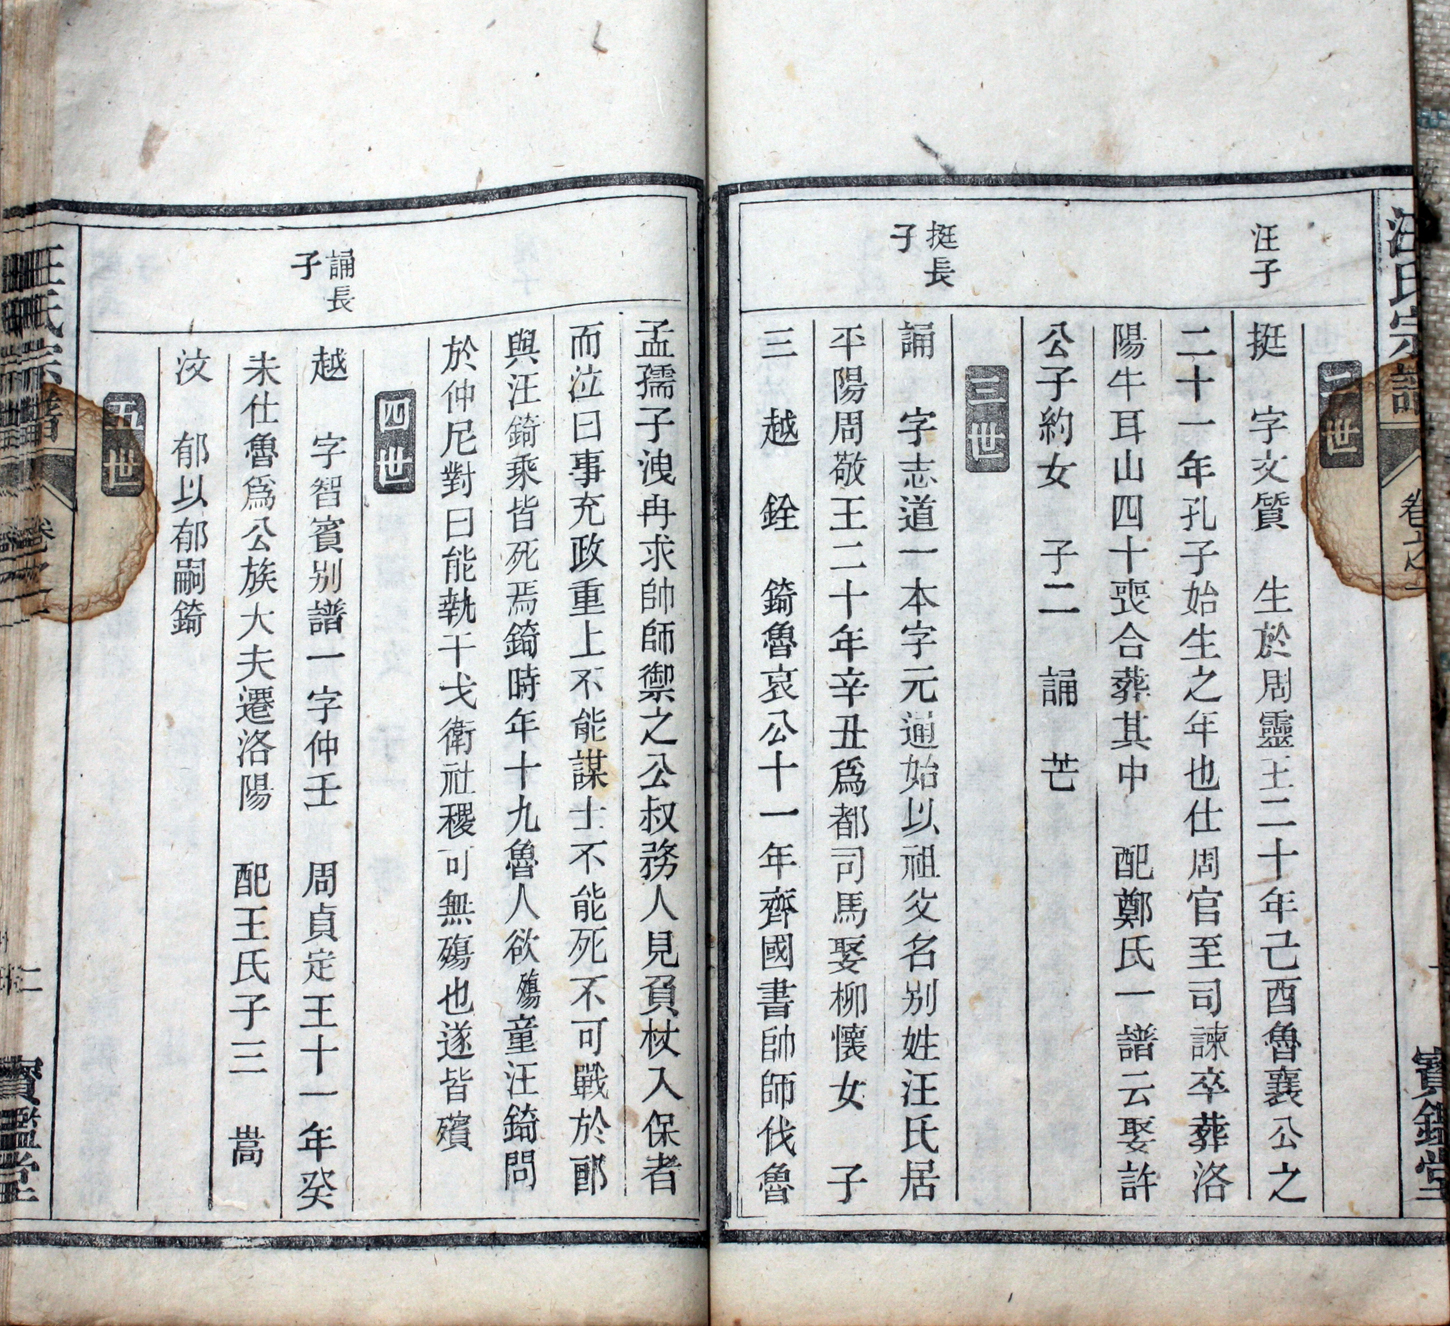 汪氏宗譜
卷之一
寶鑑堂
二世
汪子
挺 字文質 生於周靈王二十年己酉魯襄公之
二十一年孔子始生之年也仕周官至司諫卒葬洛
陽牛耳山四十喪合葬其中 配鄭氏一譜云娶許
公子約女 子二 誦 芒
三世
挺長
子
誦 字志道一本字元通始以祖父名別姓汪氏居
平陽周敬王二十年辛丑爲都司馬娶柳懷女 子
三 越 銓 錡魯哀公十一年齊國書帥師伐魯
孟孺子洩冉求帥師禦之公叔務人見負杖入保者
而泣曰事充政重上不能謀士不能死不可戰於郎
與汪錡乘皆死焉錡時年十九魯人欲殤童汪錡問
於仲尼對曰能執干戈衛社稷可無殤也遂皆殯
四世
誦長
子
越 字智賓别譜一字仲壬 周貞定王十一年癸
未仕魯爲公族大夫遷洛陽 配王氏子三 嵩
汶 郁以郁嗣錡
五世
汪氏宗譜
卷之一
寶鑑堂